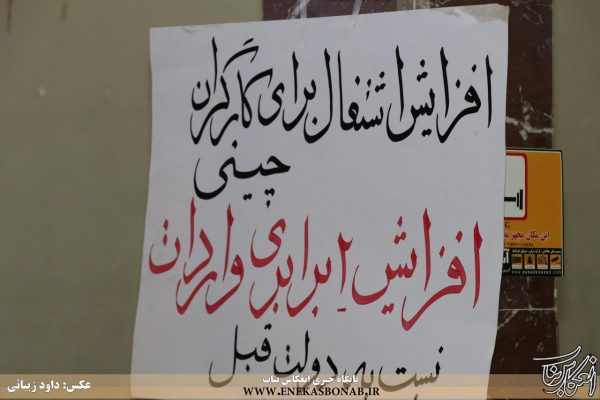 افزایش اشتغال برای کارگران
چینی
افزایش ۲ برابری واردات
نسبت به دولت قبل
این مکان مجهز به
پایگاه خبری انعکاس بناب
WWW.ENEKASBONAB.IR
عکس: داود زیبائی
انعکاس بناب